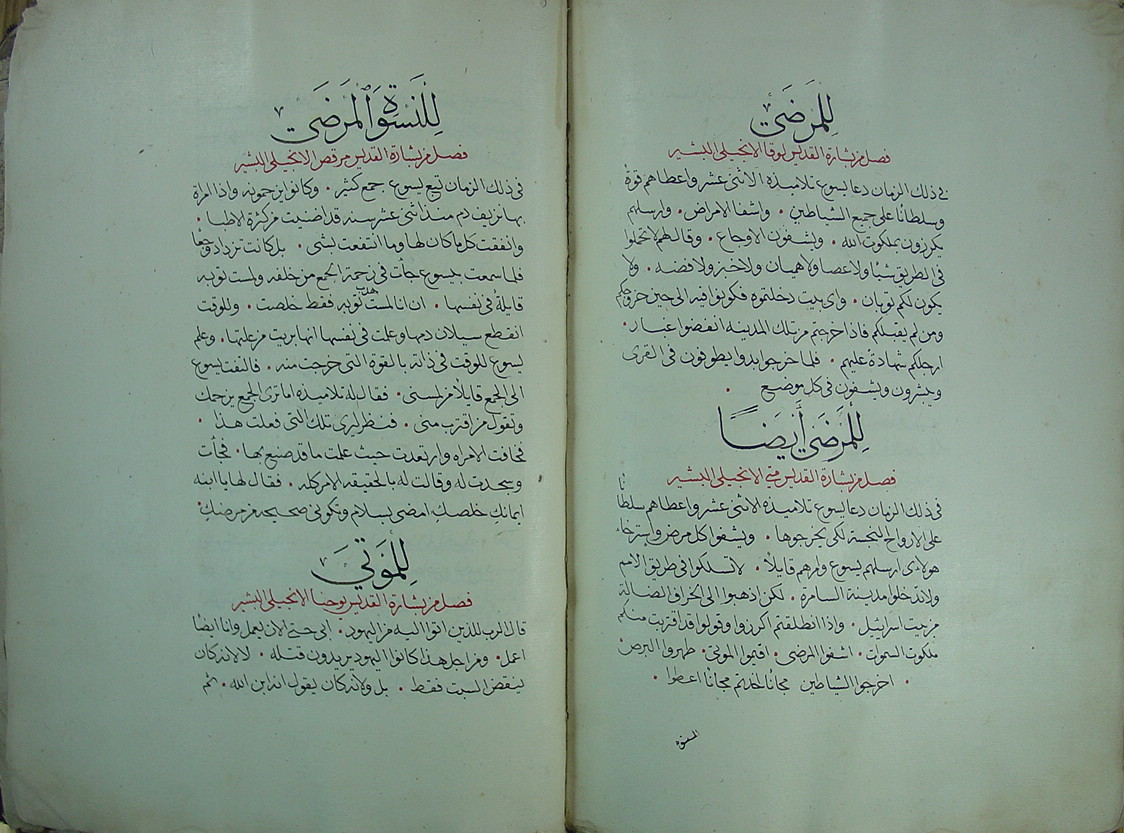 للمرضى
فصل من بشارة القديس لوقا الانجيلي البشير
في ذلك الزمان دعا يسوع تلاميذه الاثنى عشر واعطاهم قوة
وسلطانًا على جميع الشياطين • واشفا الامراض • وارسلهم
يكرزون بملكوت الله • ويشفون الاوجاع • وقال لهم لا تحملوا
في الطريق شيًا ولا عصا ولا هميان ولا خبز ولا فضه • ولا
يكون لكم ثوبان • واي بيت دخلتموه فكونوا فيه الى حين خروجكم
ومن لم يقبلكم فاذا خرجتم من تلك المدينه انفضوا غبار •
ارجلكم شهادة عليهم • فلما خرجوا بدوا يطوفون في القرى
ويبشرون ويشفون في كل موضع •
للمرضى أيضًا
فصل من بشارة القديس متى الانجيلي البشير
في ذلك الزمان دعا يسوع تلاميذه الاثنى عشر واعطاهم سلطانًا
على الارواح النجسة لكي يخرجوها • ويشفوا كل مرض واسترخاء
هولاى ارسلهم يسوع وامرهم قايلاً • لا تسلكوا في طريق الامم
ولا تدخلوا مدينة السامرة • لكن اذهبوا الى الخراف الضالة
من بيت اسراييل • واذا انطلقتم اكرزوا وقولوا قد اقتربت منكم
ملكوت السموات • اشفوا المرضى • اقيموا الموتى • طهروا البرص
• اخرجوا الشياطين مجانًا اخذتم مجانًا اعطوا •
للنسوة المرضى
فصل من بشارة القديس مرقص الانجيلي البشير
في ذلك الزمان تبع يسوع جمع كثير • وكانوا يزحمونه واذا امراة
بها نزيف دم منذ اثنى عشر سنه قد اضنيت من كثرة الاطبا •
وانفقت كل ما كان لها وما انتفعت بشى • بل كانت تزداد وجعًا
فلما سمعت بيسوع جأت في زحمة الجمع من خلفه ولمست ثوبه
قايلةً في نفسها • ان انا لمست هدب ثوبه فقط خلصت • وللوقت
انقطع سيلان دمها وعلمت في نفسها انها بريت من علتها • وعلم
يسوع للوقت في ذاته بالقوة التي خرجت منه • فالتفت يسوع
الى الجمع قايلاً من لمسني • فقال له تلاميذه اما ترى الجمع يزحمك
وتقول من اقترب مني • فنظر ليرى تلك التي فعلت هذا •
فخافت الامراه وارتعدت حيث علمت ما قد صنع بها • فجأت
وسجدت له وقالت له بالحقيقه الامر كله • فقال لها يا ابنه
ايمانك خلصك امضى بسلام وتكوني صحيحه من مرضك •
للموتى
فصل من بشارة القديس يوحنا الانجيلي البشير
قال الرب للذين اتوا اليه من اليهود • ابي حتى الان يعمل وانا ايضًا
اعمل • ومن اجل هذا كانوا اليهود يريدون قتله • لا لانه كان
ينقض السبت فقط • بل ولانه كان يقول انه ابن الله • ثم